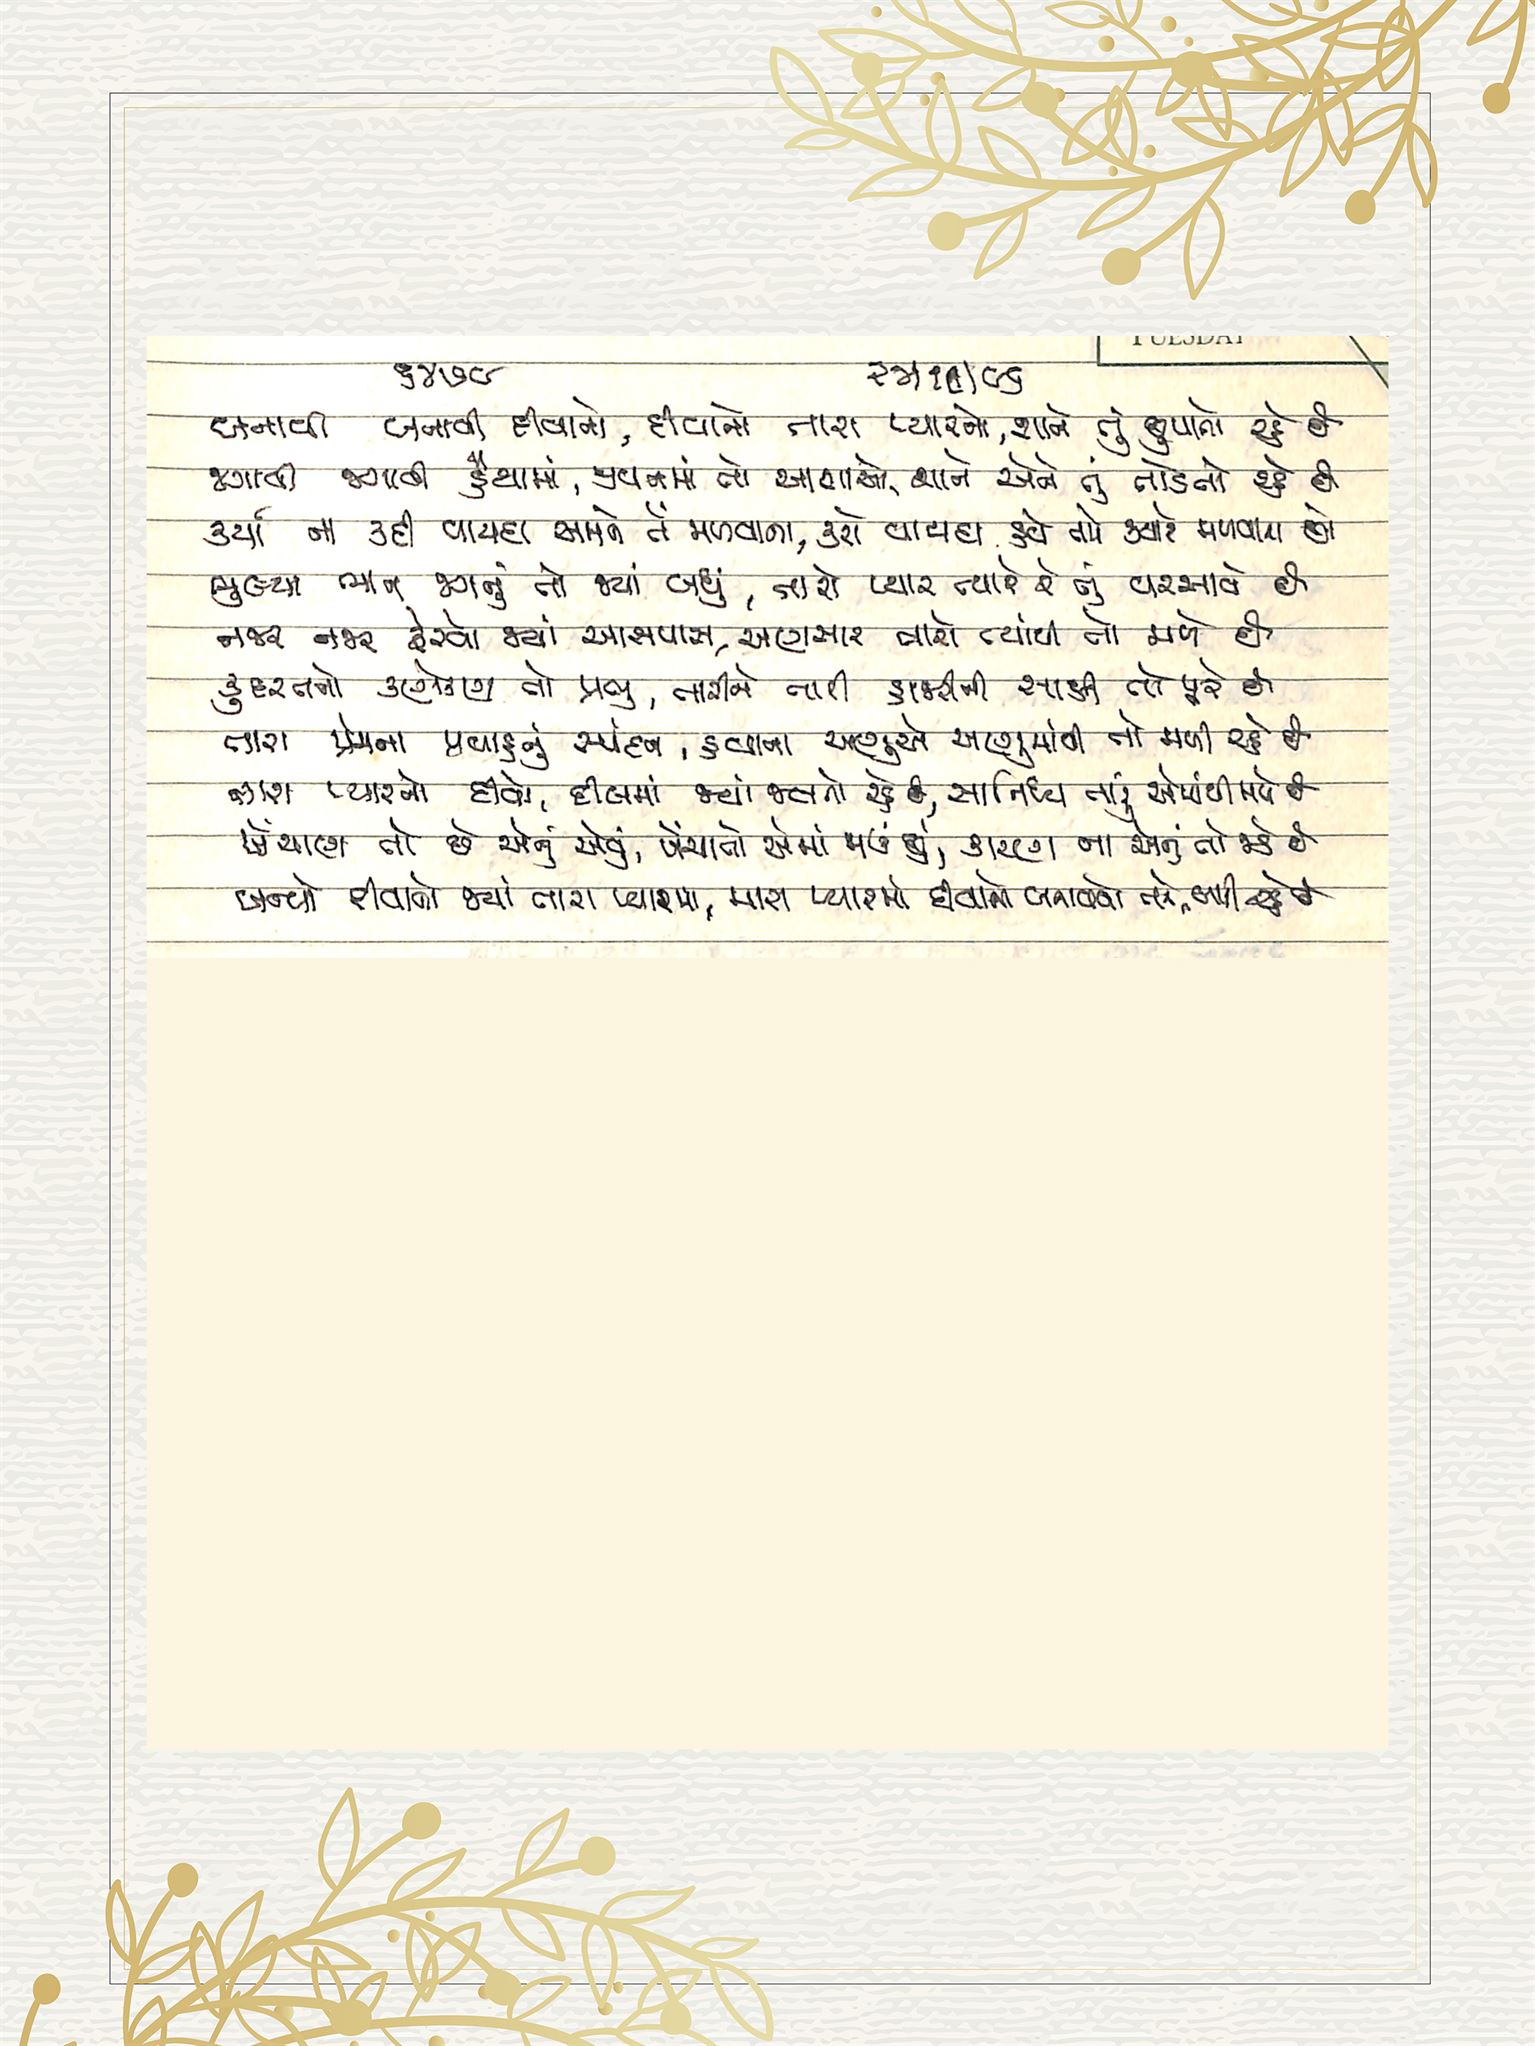 TUESDAY
૬૪૭૮ ૨૪/૧૧/૮૬
બનાવી બનાવી દીવાનો, દીવાનો તારા પ્યારનો, શાને તું છુપાતો રહે છે
જગાવી જગાવી હૈયામાં, જીવનમાં તો આશાઓ, શાને એને તું તોડતો રહે છે
કર્યા ના કદી વાયદા અમને તેં મળવાના, કરો વાયદા હવે તમે ક્યારે મળવાના છો
ભુલ્યા ભાન જગનું તો જ્યાં બધું, તારો પ્યાર ત્યારે રે તું વરસાવે છે
નજર નજર ફેરવો જ્યાં આસપાસ, અણસાર તારો ત્યાંથી તો મળે છે
કુદરતનો કણેકણ તો પ્રભુ, તારીને તારી હાજરીની સાક્ષી તો પૂરે છે
તારા પ્રેમના પ્રવાહનું સ્પંદન, હવાના અણુએ અણુમાંથી તો મળી રહે છે
તારા પ્યારનો દીવો, દીલમાં જ્યાં જલતો રહે છે, સાનિધ્ય તારું એમાંથી મળે છે
ખેંચાણ તો છે એનું એવું, ખેંચાતો એમાં જાઉં છું, કારણ ના એનું તો જડે છે
બન્યો દીવાનો જ્યાં તારા પ્યારમાં, મારા પ્યારમાં દીવાનો બનાવવો તને, બાકી રહે છે